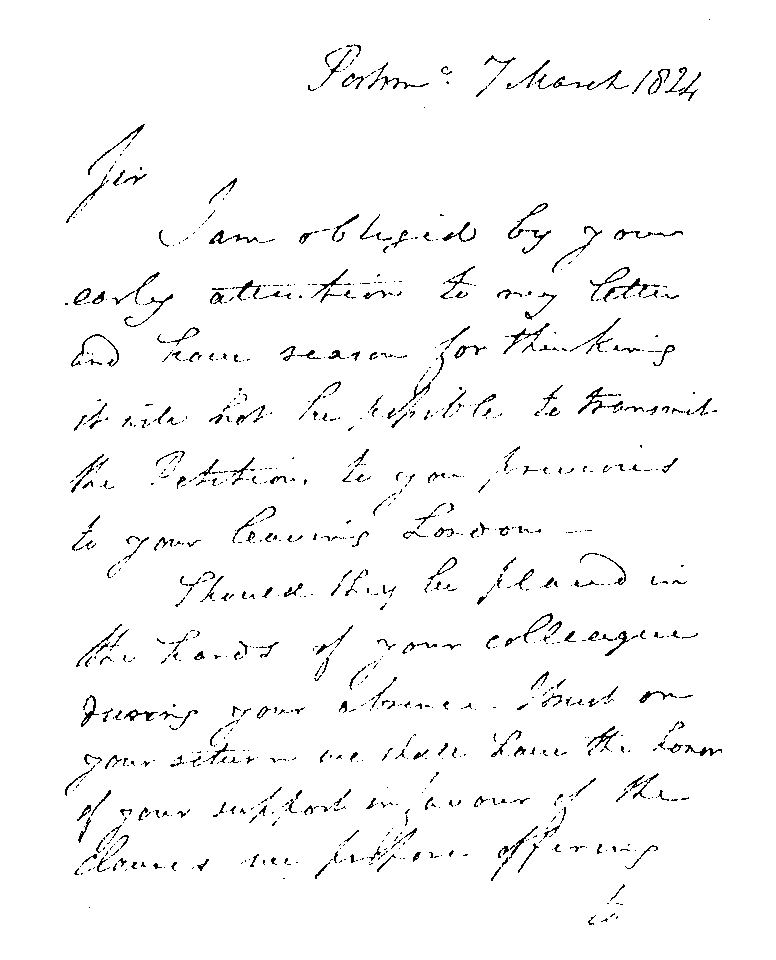 Portmo. 7 March 1824
Sir
I am obliged by your
early attention to my letter
and have reason for thinking
it will not be possible to transmit
the Petitions to you previous
to your leaving London —
Should they be placed in
the hands of your colleague
during your absence I trust on
your return we shall have the honor
of your support in favour of the
Clauses we propose offering
to